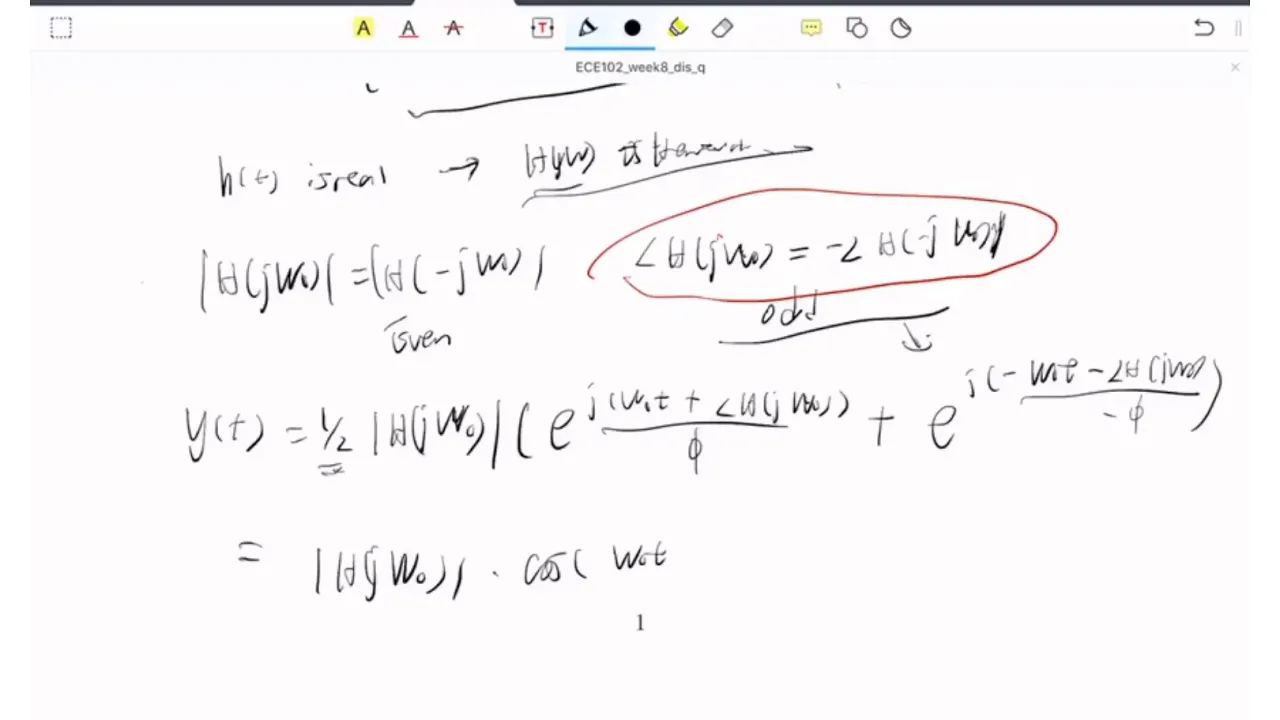 A A A T
ECE102_week8_dis_q
h(t) is real → H(jω)
|H(jω₀)| = |H(-jω₀)| ∠H(jω₀) = -∠H(-jω₀)
is even odd
y(t) = 1/2 |H(jω₀)| ( e^{j(ω₀t + ∠H(jω₀))} + e^{j(-ω₀t - ∠H(jω₀))} )
ϕ -ϕ
= |H(jω₀)| · cos( ω₀t
1